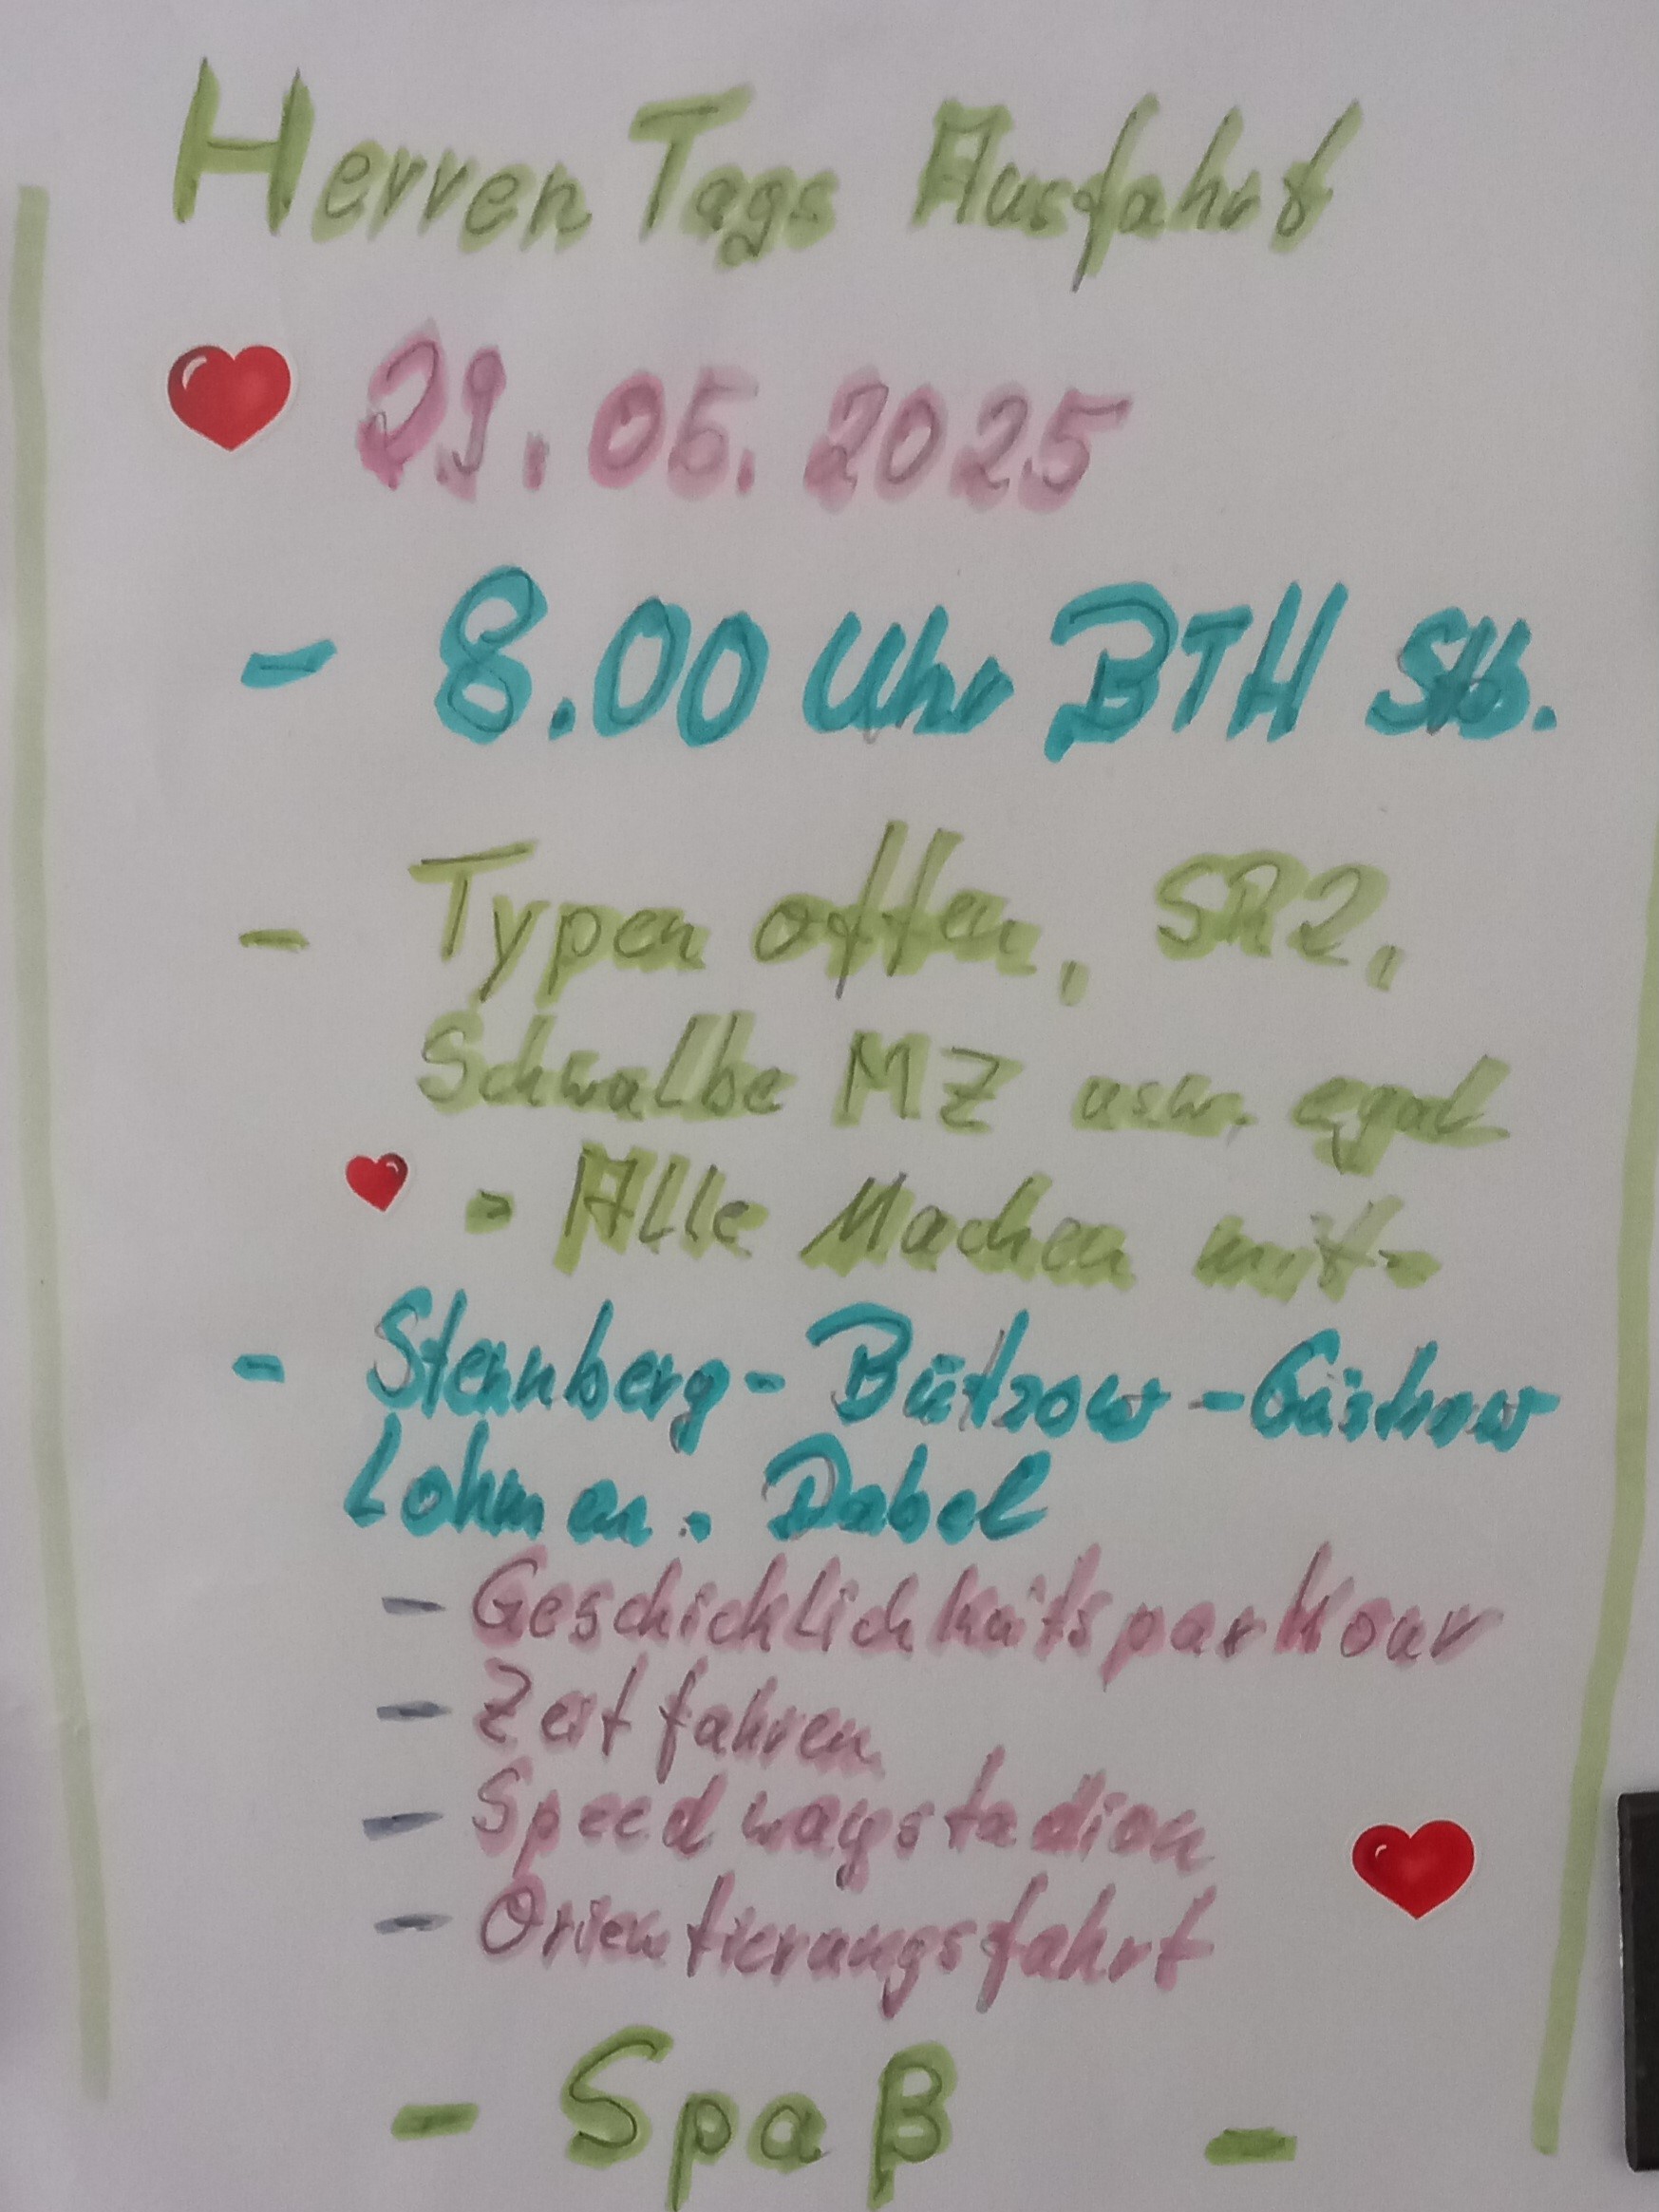 Herren Tags Ausfahrt
29.05.2025
- 8.00 Uhr BTH Stb.
- Typen offen, SR2,
Schwalbe MZ usw. egal
- Alle Machen mit -
- Sternberg - Bützow - Güstrow
Lohmen - Dabel
- Geschicklichkeitsparkour
- Zeitfahren
- Speedwaystadion
- Orientierungsfahrt
- Spaß -